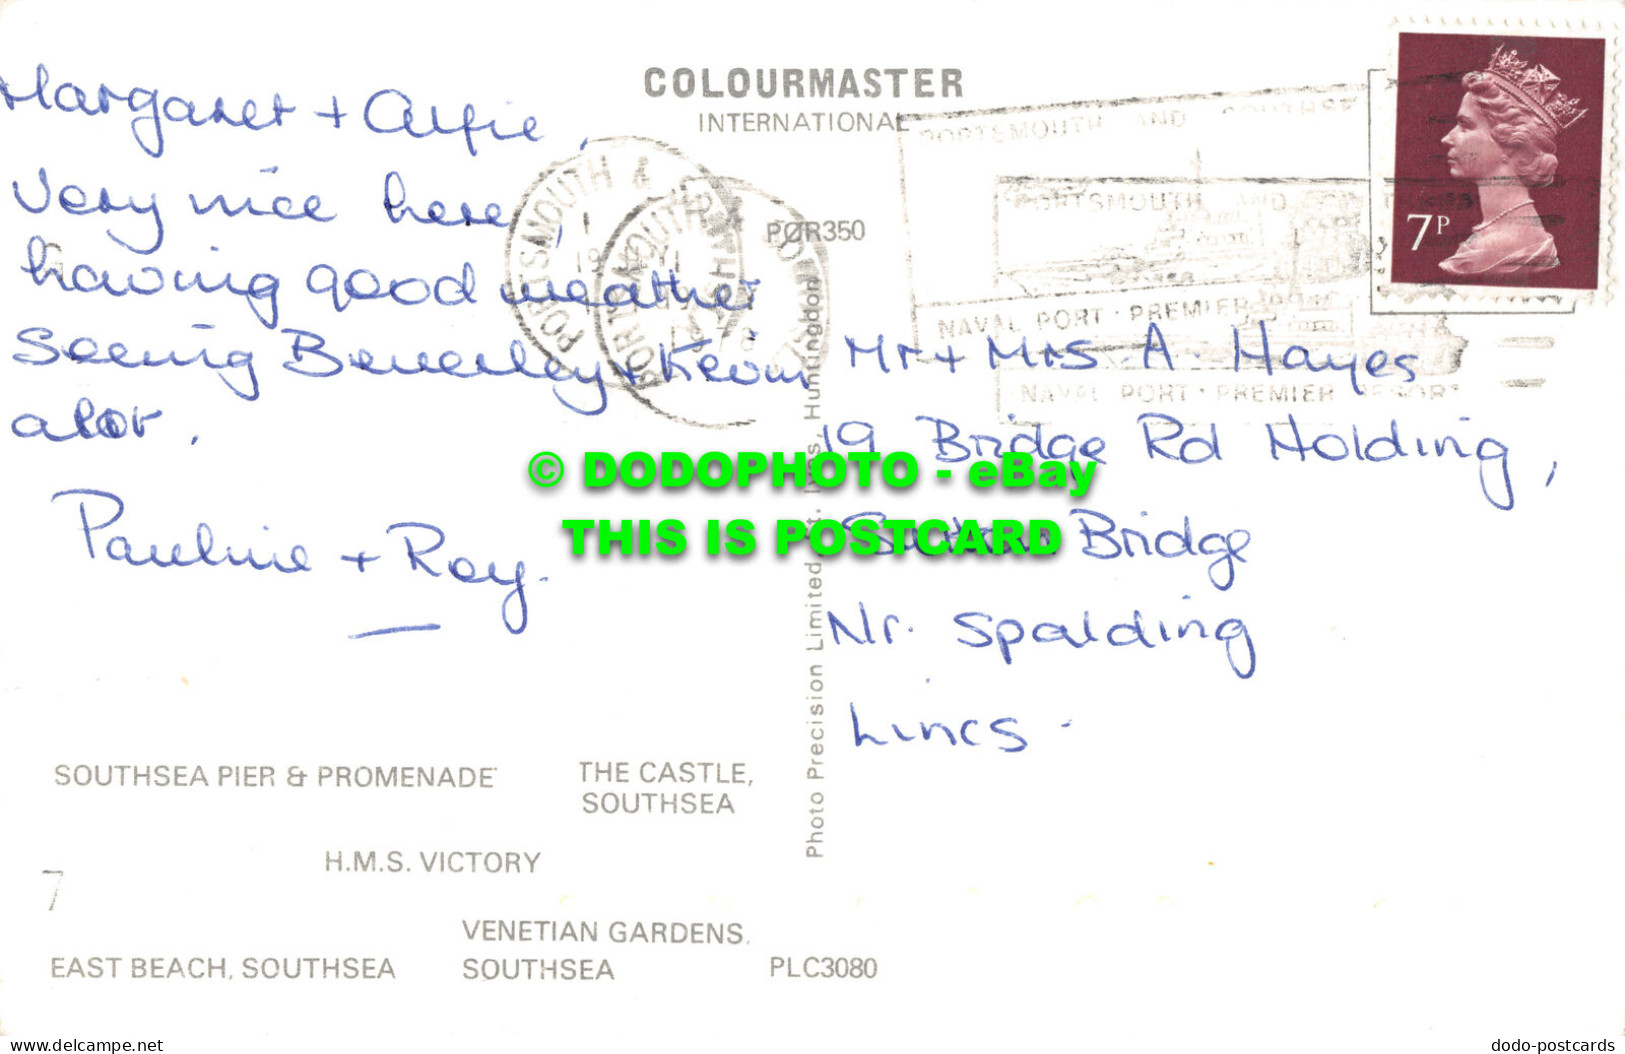 COLOURMASTER
INTERNATIONAL
Margaret + Alfie,
Very nice here,
having good weather
Seeing Beverley + Kevin
alot.
Pauline + Roy.
PORTSMOUTH AND
PORTSMOUTH AND
NAVAL PORT · PREMIER
NAVAL PORT · PREMIER RESORT
PORTSMOUTH &
7P
POR350
Mr + Mrs A. Hayes
19 Bridge Rd Holding,
Sutton Bridge
Nr. Spalding
Lincs.
Photo Precision Limited, St. Ives, Huntingdon
© DODOPHOTO - eBay
THIS IS POSTCARD
SOUTHSEA PIER & PROMENADE
THE CASTLE,
SOUTHSEA
H.M.S. VICTORY
7
VENETIAN GARDENS,
SOUTHSEA
EAST BEACH, SOUTHSEA
PLC3080
www.delcampe.net
dodo-postcards